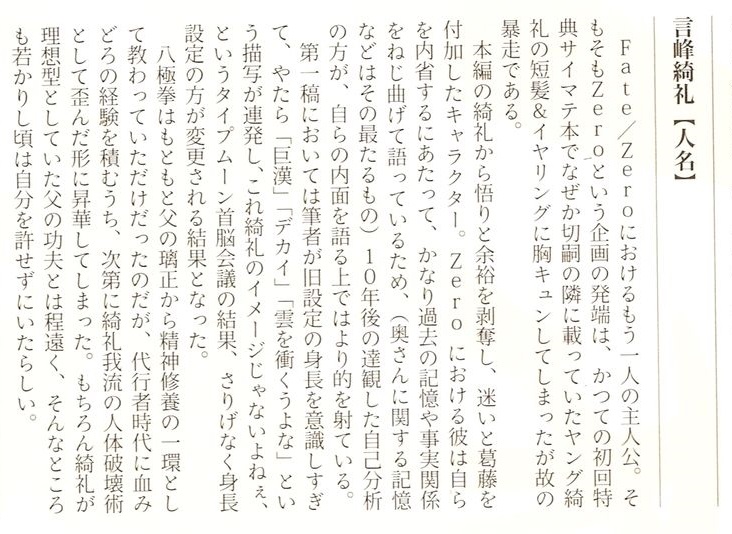 言峰綺礼【人名】
　Fate／Zeroにおけるもう一人の主人公。そ
もそもZeroという企画の発端は、かつての初回特
典サイマテ本でなぜか切嗣の隣に載っていたヤング綺
礼の短髪＆イヤリングに胸キュンしてしまったが故の
暴走である。
　本編の綺礼から悟りと余裕を剥奪し、迷いと葛藤を
付加したキャラクター。Zeroにおける彼は自ら
を内省するにあたって、かなり過去の記憶や事実関係
をねじ曲げて語っているため、（奥さんに関する記憶
などはその最たるもの）10年後の達観した自己分析
の方が、自らの内面を語る上ではより的を射ている。
　第一稿においては筆者が旧設定の身長を意識しすぎ
て、やたら「巨漢」「デカイ」「雲を衝くうよな」とい
う描写が連発し、これ綺礼のイメージじゃないよねぇ、
というタイプムーン首脳会議の結果、さりげなく身長
設定の方が変更される結果となった。
　八極拳はもともと父の璃正から精神修養の一環とし
て教わっていただけだったのだが、代行者時代に血み
どろの経験を積むうち、次第に綺礼我流の人体破壊術
として歪んだ形に昇華してしまった。もちろん綺礼が
理想型としていた父の功夫とは程遠く、そんなところ
も若かりし頃は自分を許せずにいたらしい。